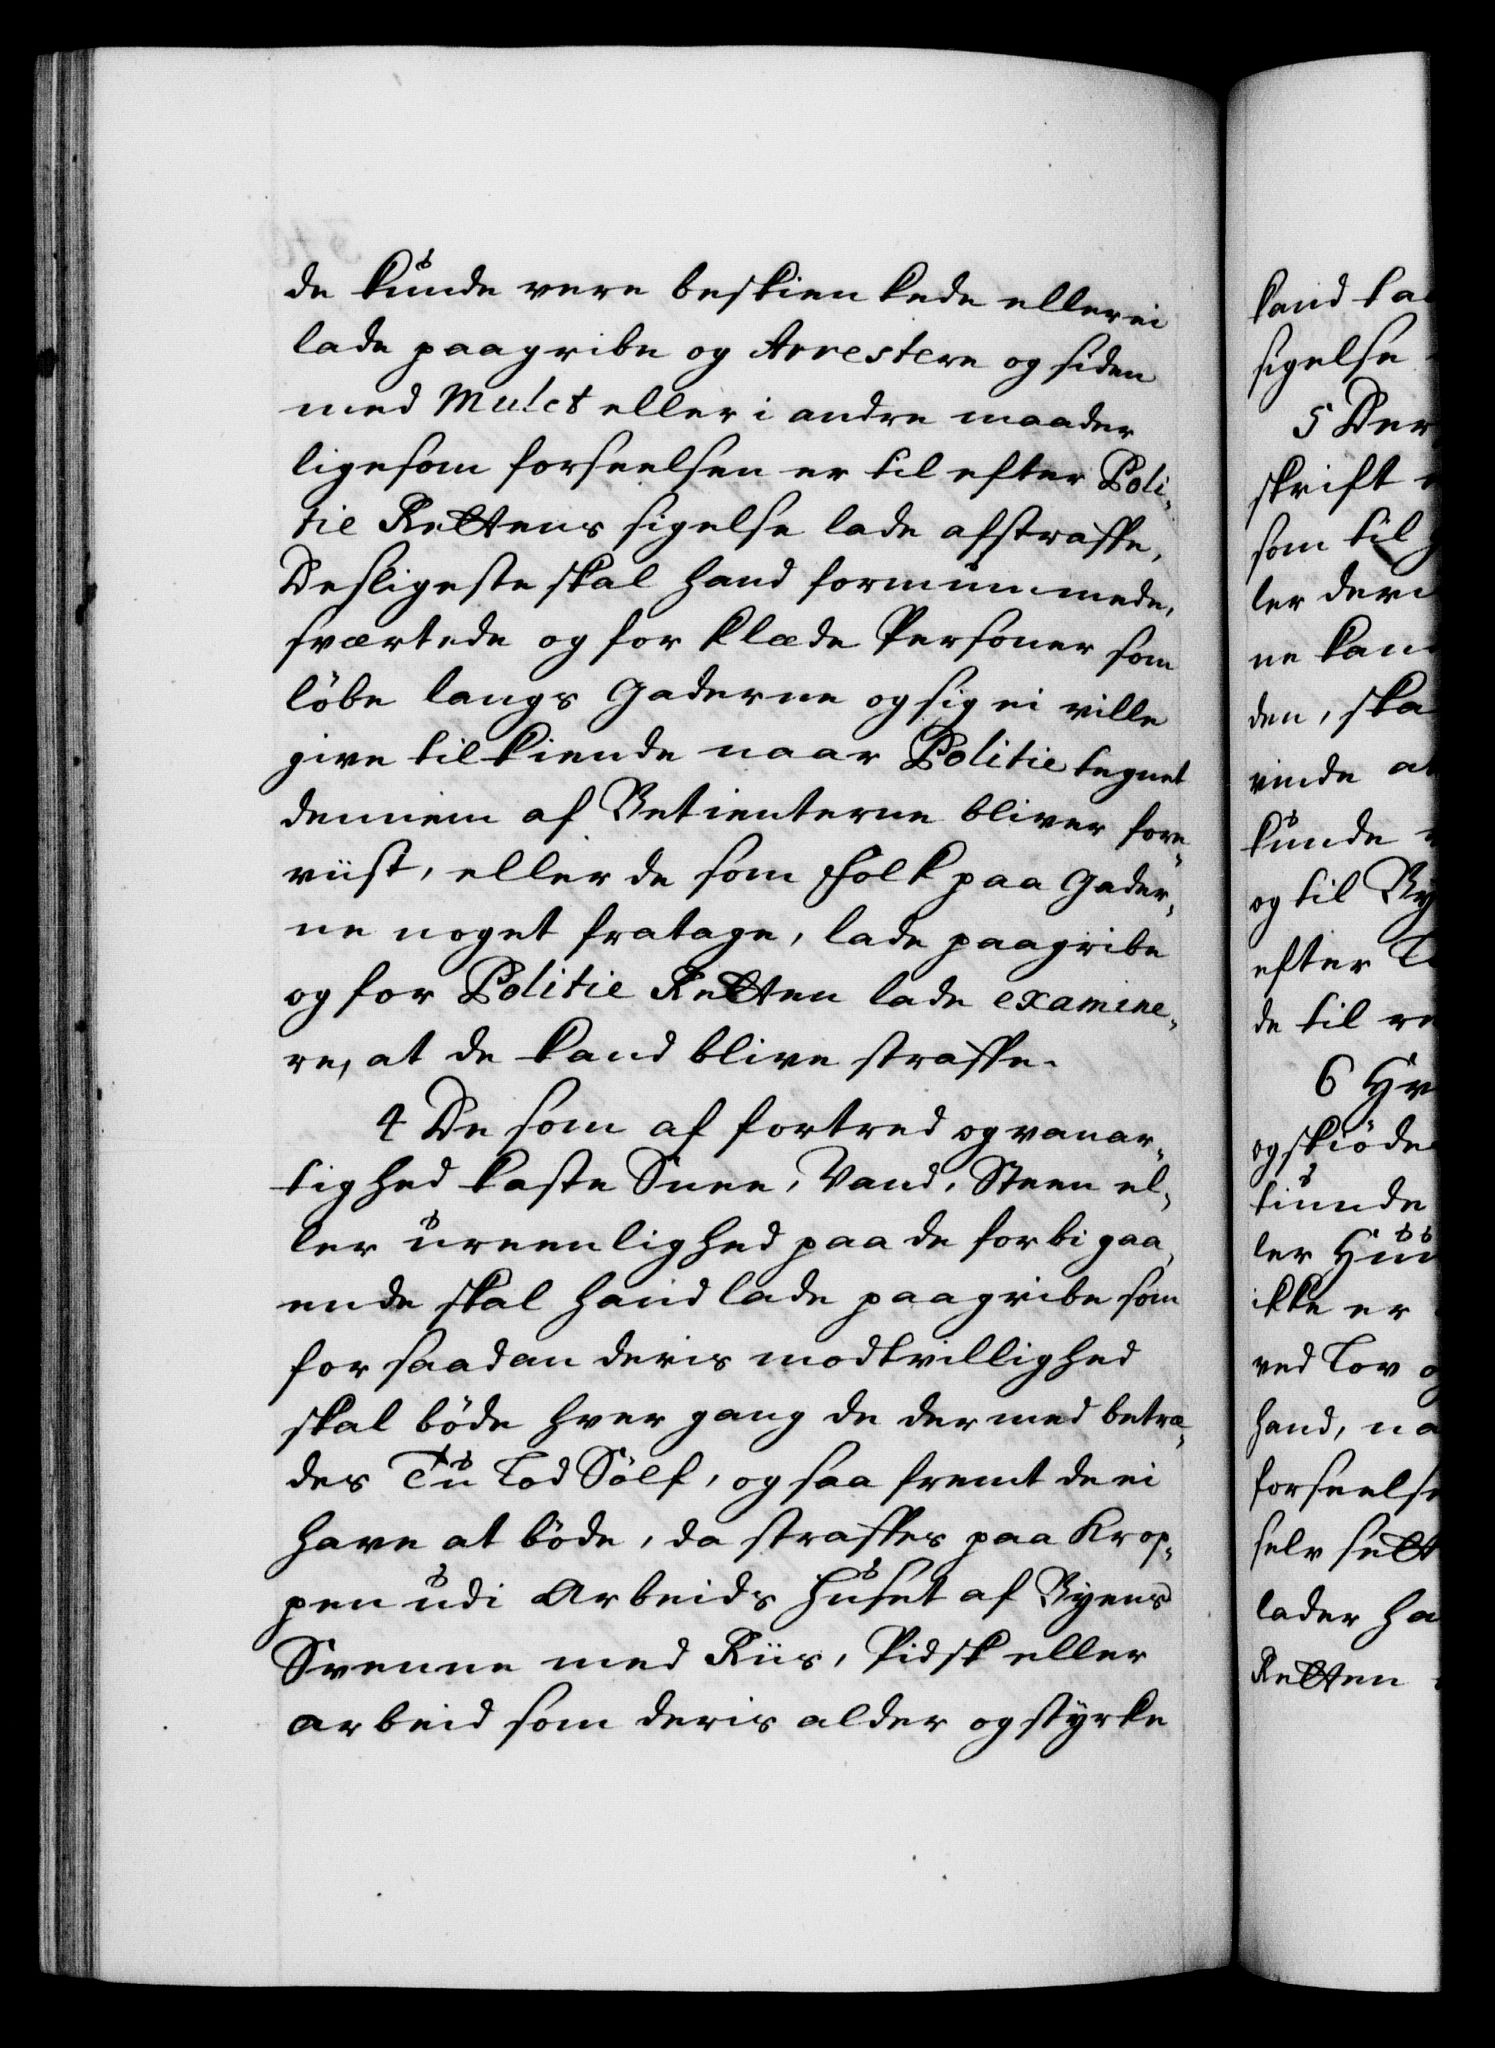 de kunde vere beskienkede eller ei
lade paagribe og Arrestere og siden
med Mulct eller i andre maader
ligesom forseelsen er til efter Poli-
tie Rettens sigelse lade afstraffe,
Desligeste skal hand formummede,
sværtede og for klæde Personer som
løbe langs Gaderne og sig ei ville
give tilkiende naar Politie tegnet
dennem af Betienterne bliver fore-
viist, eller de som Folk paa Gader-
ne noget fratage, lade paagribe
og for Politie Retten lade examine-
re, at de kand blive straffe.
4 De som af fortred og vanar-
tighed kaste Snee, Vand, Steen el-
ler ureenlighed paa de forbigaa-
ende skal hand lade paagribe som
for saadan deris modtvillighed
skal bøde hver gang de dermed betræ-
des Tu Lod Sølf, og saa fremt de ei
have at bøde, da straffes paa Krop-
pen udi Arbeids Huset af Byens
Svenne med Riis, Pidsk eller
arbeid som deris alder og styrke
kand
sigelse
5 Der
skrift
som til
ler
ne
den, ska
vinde
kunde
og til By
efter
de til
6 Hv
og skiøde
kunde
ler
ikke er
ved Lov
hand, na
forseelse
selv sett
lader ha
Retten